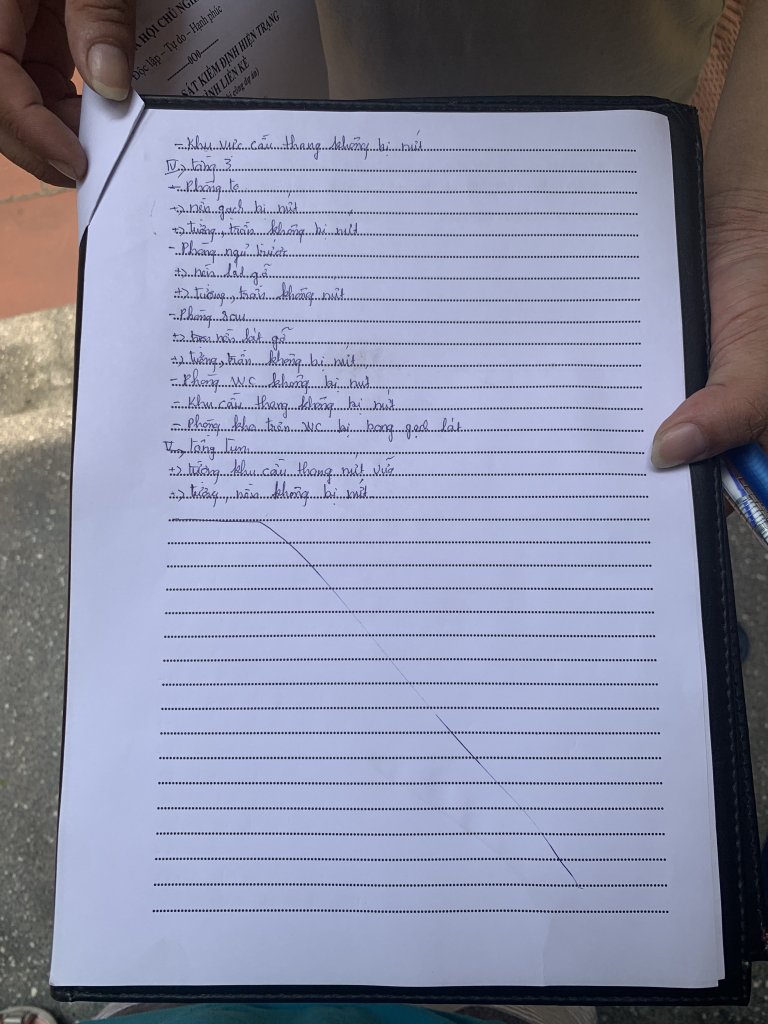 HỘI CHỦ NGHĨ
Độc lập – Tự do – Hạnh phúc
-------o0o-------
SÁT KIỂM ĐỊNH HIỆN TRẠNG
ÌNH LIỀN KỀ
công dự án)
- Khu vực cầu thang không bị nứt
IV, tầng 3
- Phòng
+, nền gạch bị nứt
+, tường, trần không bị nứt
- Phòng ngủ trước
+, nền lát gỗ
+, tường, trần không nứt
- Phòng sau
+, nền lát gỗ
+, tường, trần không bị nứt
- Phòng WC không bị nứt
- Khu cầu thang không bị nứt
- Phòng kho trên WC bị bong gạch lát
V, tầng Tum
+, tường khu cầu thang nứt vữa
+, tường, nền không bị nứt